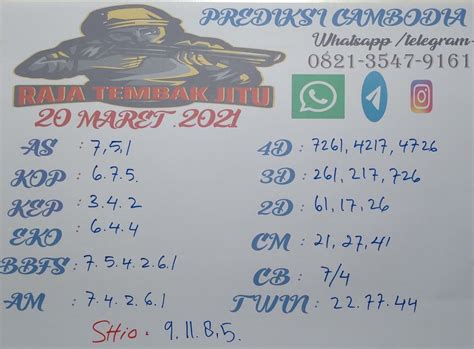 PREDIKSI CAMBODIA
Whatsapp /telegram-
0821-3547-9161
RAJA TEMBAK JITU
20 MARET .2021
AS : 7,5,1
KOP : 6.7.5.
KEP : 3.4.2
EKO : 6.4.4
BBFS : 7.5.4.2.6.1
AM : 7.4.2.6.1
Shio . 9.11.8.5.
4D : 7261, 4217, 4726
3D : 261, 217, 726
2D : 61, 17, 26
CM : 21, 27, 41
CB : 7/4
TWIN : 22.77.44